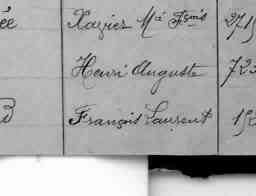 ée Xavier Mie Fçois 271
Henri Auguste 723
François Laurent